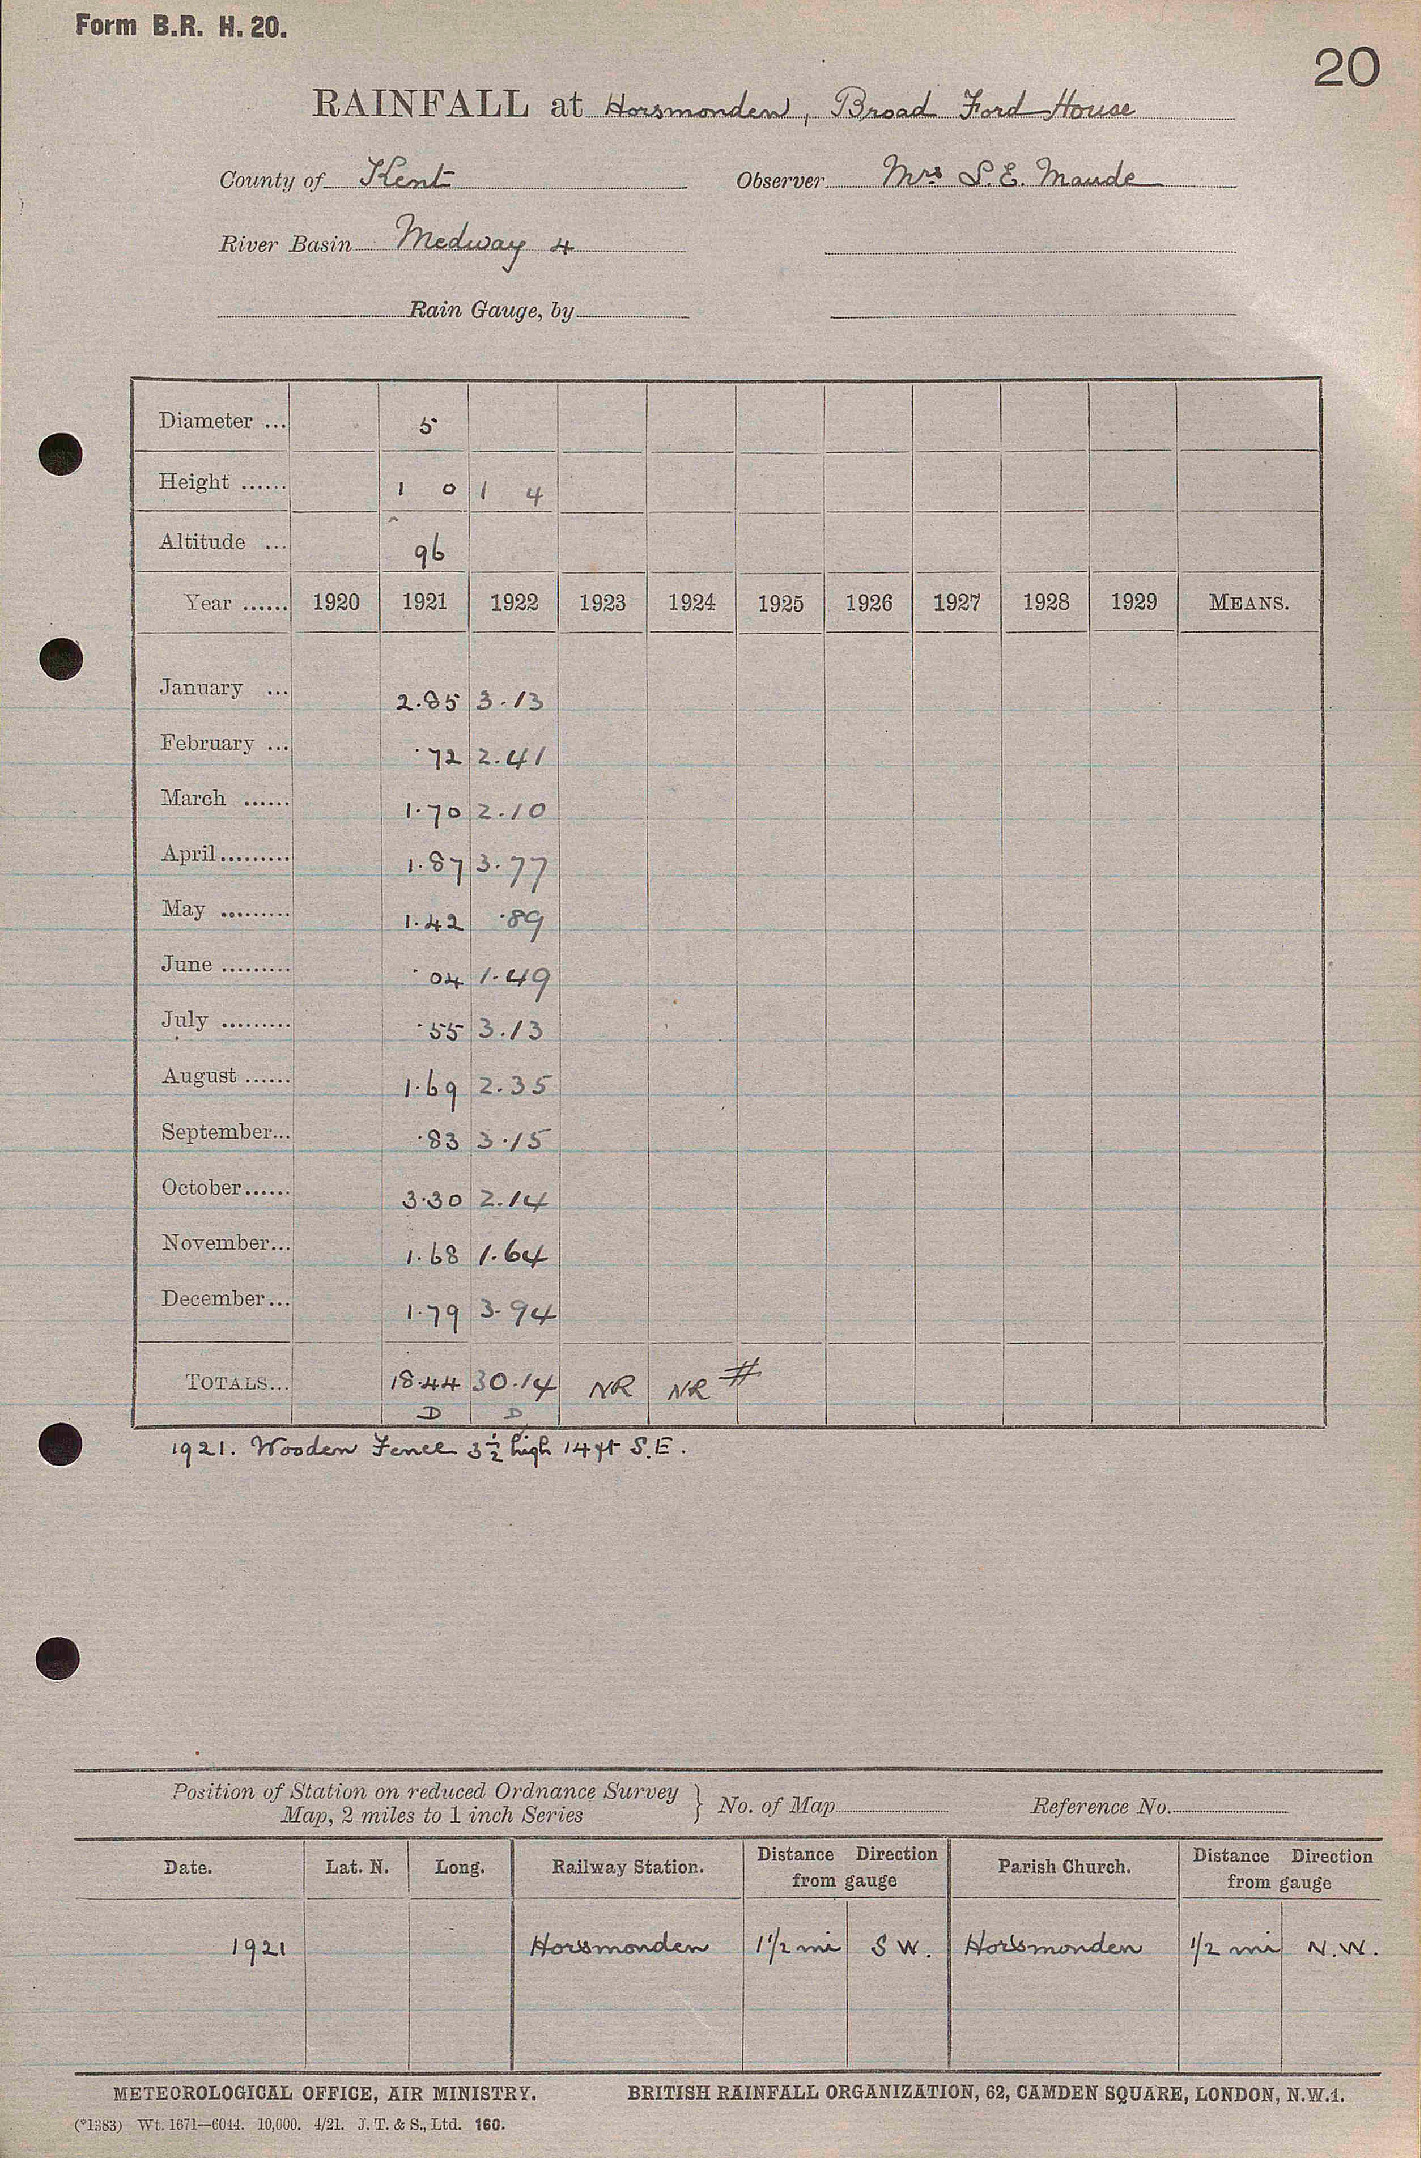 Form B.R. H. 20.
20
RAINFALL at Horsmonden, Broad Ford House
County of Kent Observer Mrs S.E. Maude
River Basin Medway 4
Rain Gauge, by
Diameter ... 5
Height ...... 1 0 1 4
Altitude ... 96
Year ...... 1920 1921 1922 1923 1924 1925 1926 1927 1928 1929 MEANS.
January ... 2.85 3.13
February ... .72 2.41
March ...... 1.70 2.10
April ......... 1.87 3.77
May ......... 1.42 .89
June ......... .04 1.49
July ......... .55 3.13
August ...... 1.69 2.35
September... .83 3.15
October ...... 3.30 2.14
November... 1.68 1.64
December... 1.79 3.94
TOTALS... 18.44 30.14 NR NR #
D D
1921. Wooden Fence 3½ high 14ft S.E.
Position of Station on reduced Ordnance Survey
Map, 2 miles to 1 inch Series } No. of Map Reference No.
Date. Lat. N. Long. Railway Station. Distance Direction from gauge Parish Church. Distance Direction from gauge
1921 Horsmonden 1 1/2 mi S W. Horsmonden 1/2 mi N.W.
METEOROLOGICAL OFFICE, AIR MINISTRY. BRITISH RAINFALL ORGANIZATION, 62, CAMDEN SQUARE, LONDON, N.W.1.
(*1383) Wt. 1671—6044. 10,000. 4/21. J. T. & S., Ltd. 160.